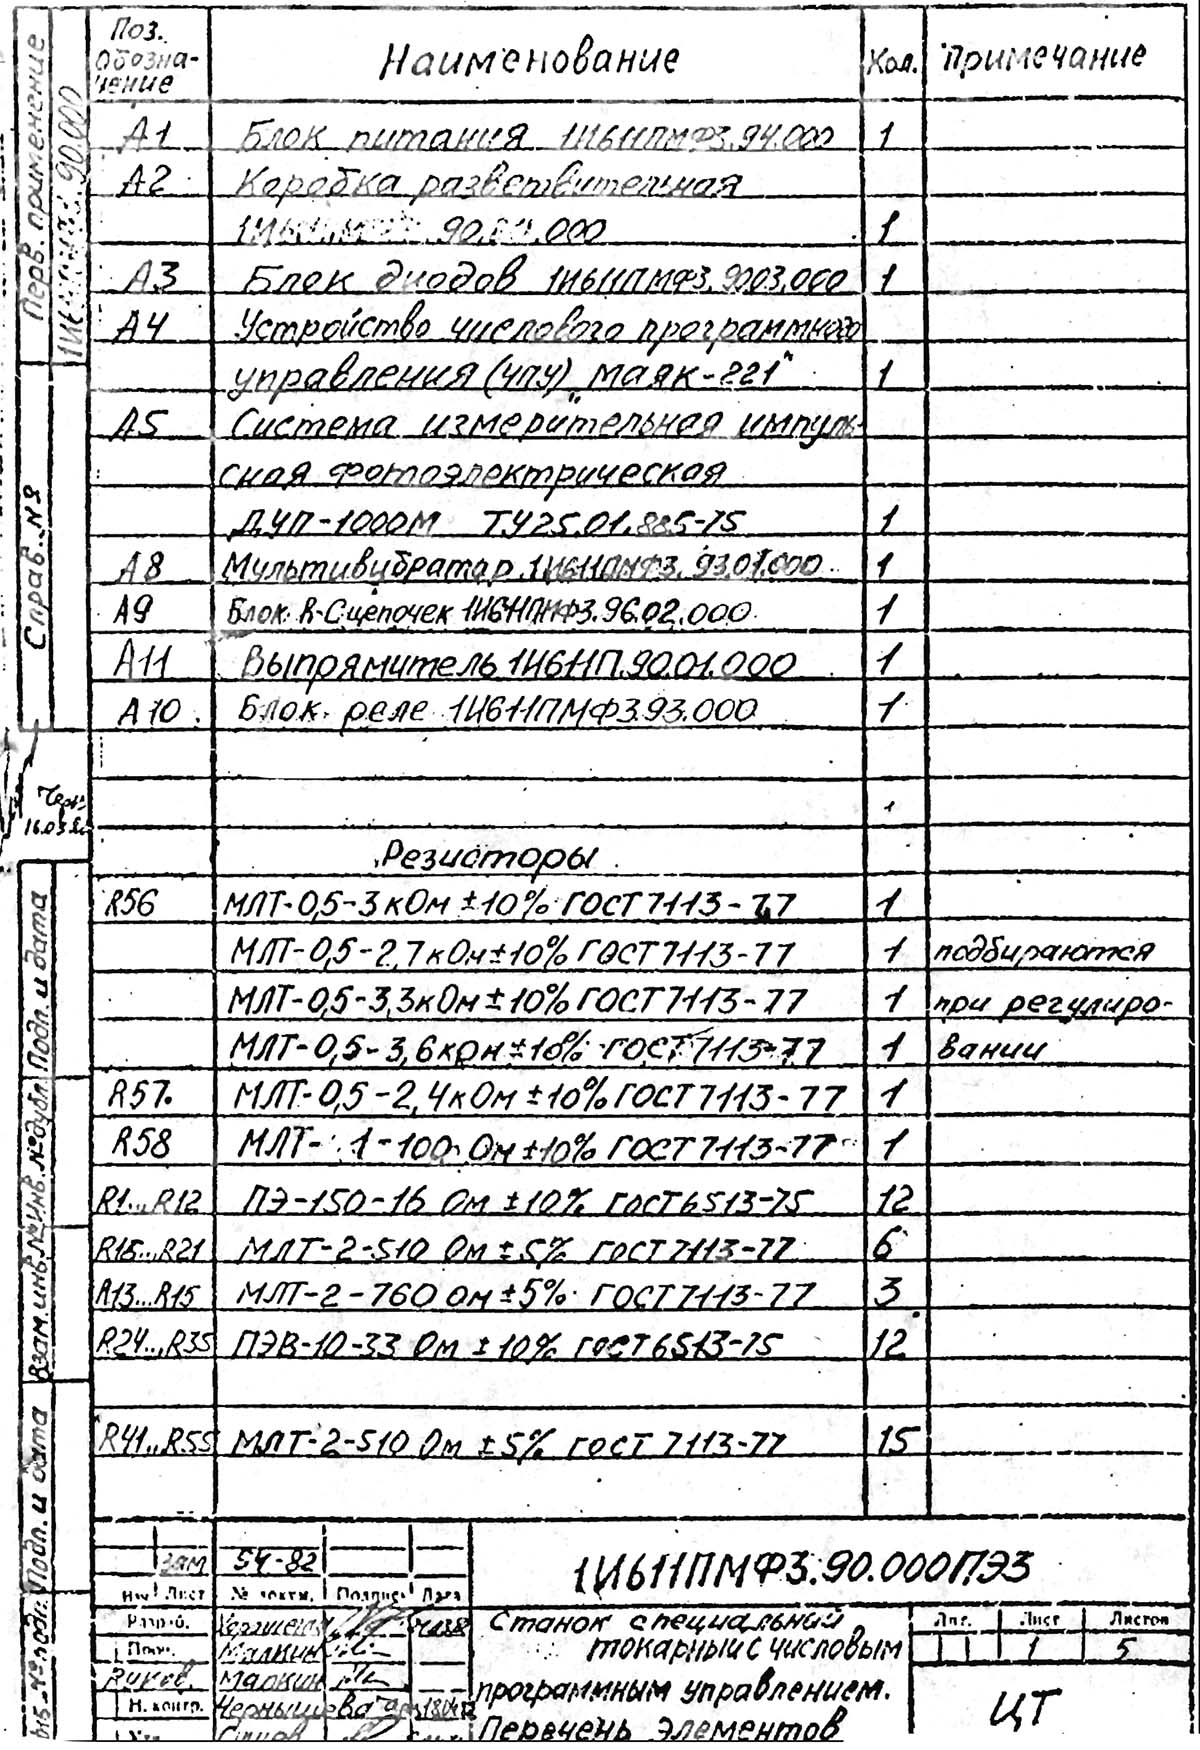 Поз. Обозна-чение Наименование Кол. Примечание
А1 Блок питания 1И611ПМФ3.94.000 1
А2 Коробка разветвительная
90. .000 1
А3 Блок диодов 1И611ПМФ3.90.03.000 1
А4 Устройство числового программного
управления (ЧПУ) „Маяк-221" 1
А5 Система измерительная импуль-
сная фотоэлектрическая
ДУП-1000М ТУ25.01.885-75 1
А8 Мультивибратор 1И611ПМФ3.93.01.000 1
А9 Блок R-C цепочек 1И611ПМФ3.96.02.000 1
А11 Выпрямитель 1И611П.90.01.000 1
А10 Блок реле 1И611ПМФ3.93.000 1
Резисторы
R56 МЛТ-0,5-3 кОм ±10% ГОСТ 7113-77 1
МЛТ-0,5-2,7 кОм ±10% ГОСТ 7113-77 1 подбираются
МЛТ-0,5-3,3 кОм ±10% ГОСТ 7113-77 1 при регулиро-
МЛТ-0,5-3,6 кОм ±10% ГОСТ 7113-77 1 вании
R57 МЛТ-0,5-2,4 кОм ±10% ГОСТ 7113-77 1
R58 МЛТ-1-100 Ом ±10% ГОСТ 7113-77 1
R1...R12 ПЭ-150-16 Ом ±10% ГОСТ 6513-75 12
R16...R21 МЛТ-2-510 Ом ±5% ГОСТ 7113-77 6
R13...R15 МЛТ-2-760 Ом ±5% ГОСТ 7113-77 3
R24...R35 ПЭВ-10-33 Ом ±10% ГОСТ 6513-75 12
R41...R55 МЛТ-2-510 Ом ±5% ГОСТ 7113-77 15
Перв. применение
90.000
Справ. №
16.03
Подп. и дата
Инв. № дубл.
Взам. инв. №
Подп. и дата
Инв. № подл.
Зам 54-82
Изм Лист № докум. Подпись Дата
1И611ПМФ3.90.000ПЭ3
Разраб.
Пров. Малкин
Руков. Малкин
Н. контр. Чернышева
Утв.
Станок специальный
токарный с числовым
программным управлением.
Перечень элементов
Лит. Лист Листов
1 5
ЦТ